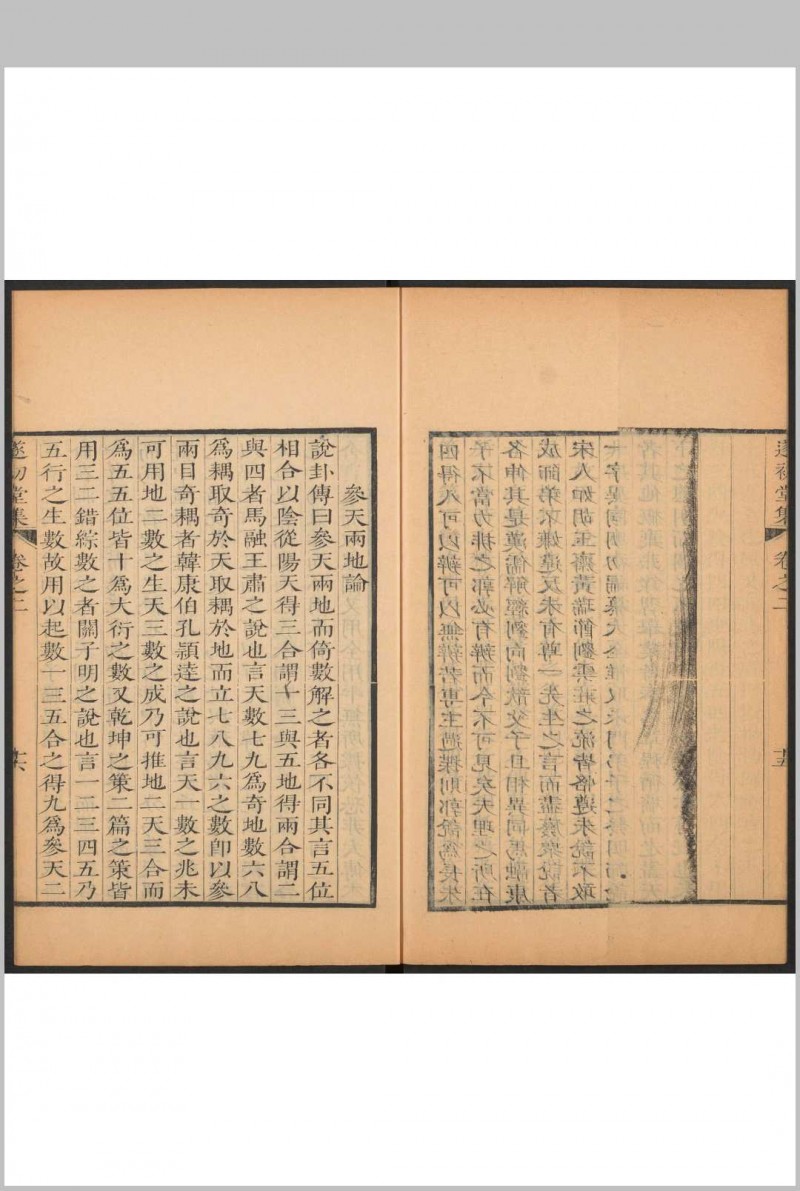 遂初堂集 卷之二 十五
四得八可以辨可以無辨若專主過揲則郭說為長朱
子不當力排之郭必有辨而今不可見矣天理之所在
各伸其是漢儒解經劉向劉歆父子且相異同馬融康
成師弟不嫌違反未有尊一先生之言而盡廢衆說者
宋人如胡玉齋黃瑞節劉雲莊之流皆恪遵朱說不敢
一字異同
參天兩地論
說卦傳曰參天兩地而倚數解之者各不同其言五位
相合以陰從陽天得三合謂一三與五地得兩合謂二
與四者馬融王肅之說也言天數七九爲奇地數六八
爲耦取奇於天取耦於地而立七八九六之數卽以參
兩目奇耦者韓康伯孔穎達之說也言天一數之兆未
可用地二數之生天三數之成乃可推地二天三合而
爲五五位皆十爲大衍之數又乾坤之策二篇之策皆
用三二錯綜數之者關子明之說也言一二三四五乃
五行之生數故用以起數一三五合之得九爲參天二
遂初堂集 卷之二 十六